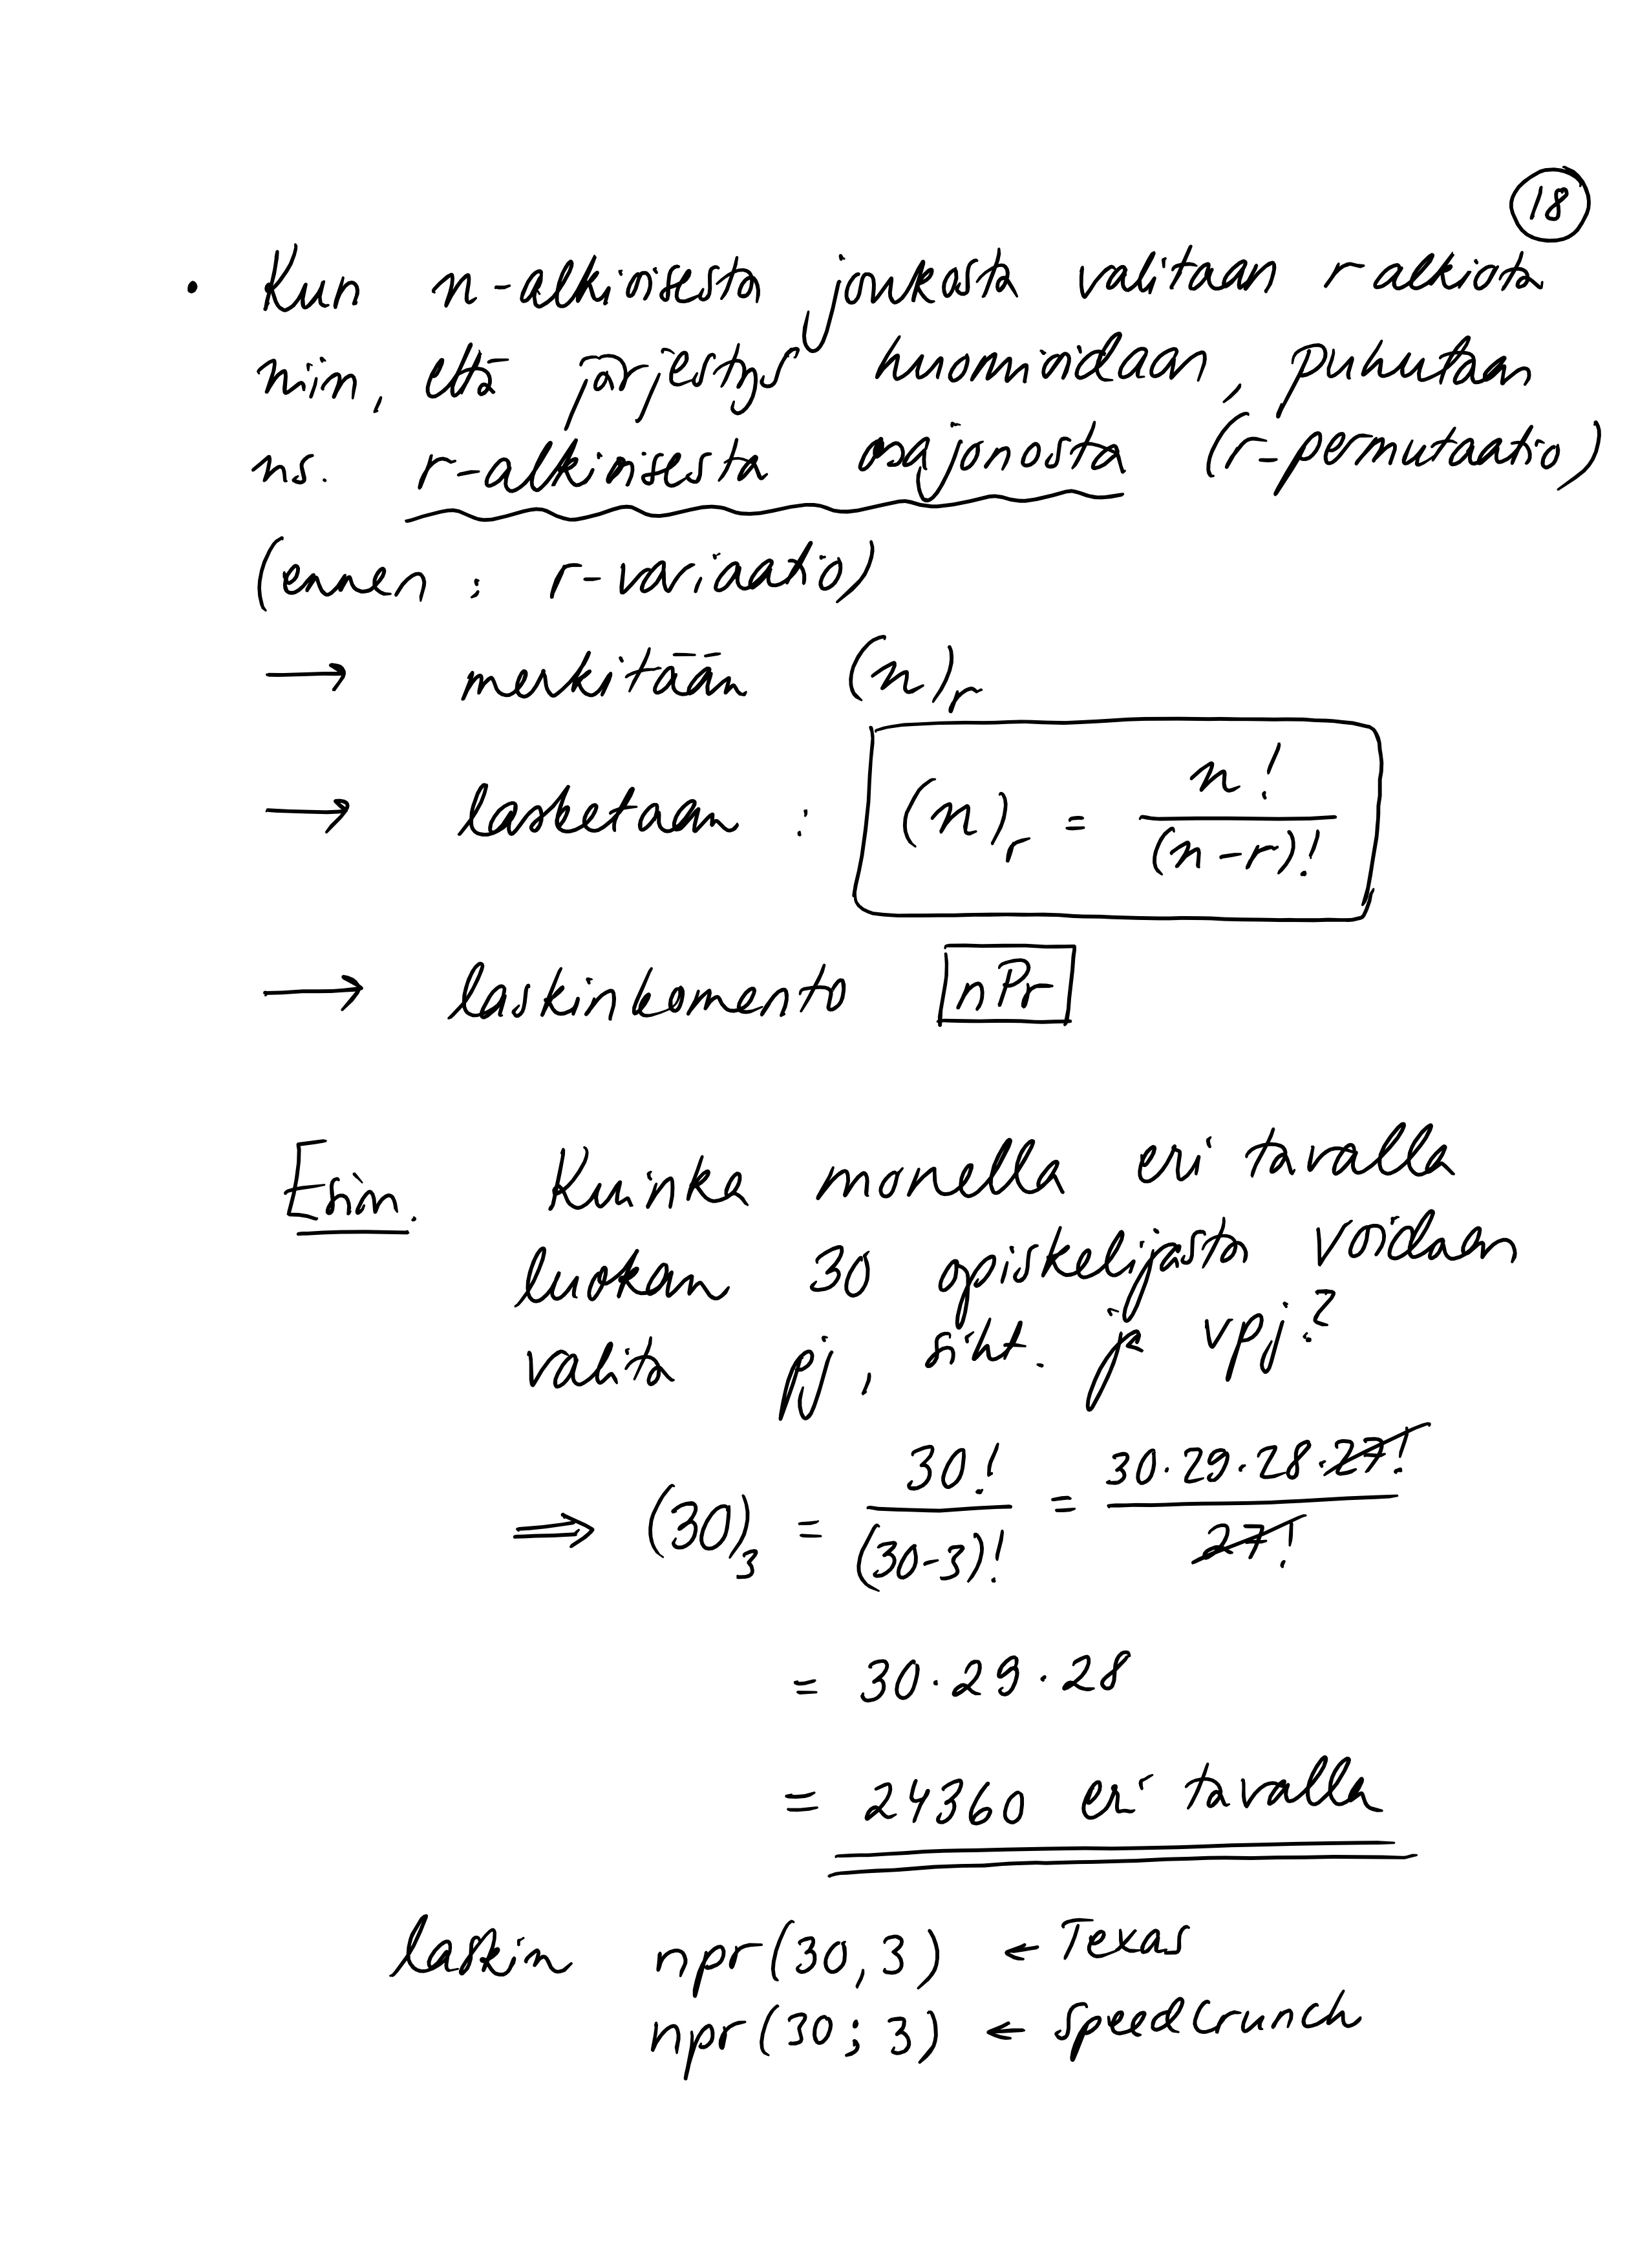 18
• Kun n-alkioisesta joukosta valitaan r-alkiota
niin, että järjestys huomioidaan, puhutaan
ns. r-alkioisesta osajonosta (r-permutaatio)
(ennen : r-variaatio)
→ merkitään (n)_r
→ lasketaan : (n)_r = n! / (n-r)!
→ laskinkomento nPr
Esim. Kuinka monella eri tavalla
luokan 30 opiskelijasta voidaan
valita pj, siht. ja vpj?
⇒ (30)_3 = 30! / (30-3)! = 30·29·28·27! / 27!
= 30·29·28
= 24360 eri tavalla
laskin npr(30,3) ← Texas
npr(30;3) ← Speedcrunch